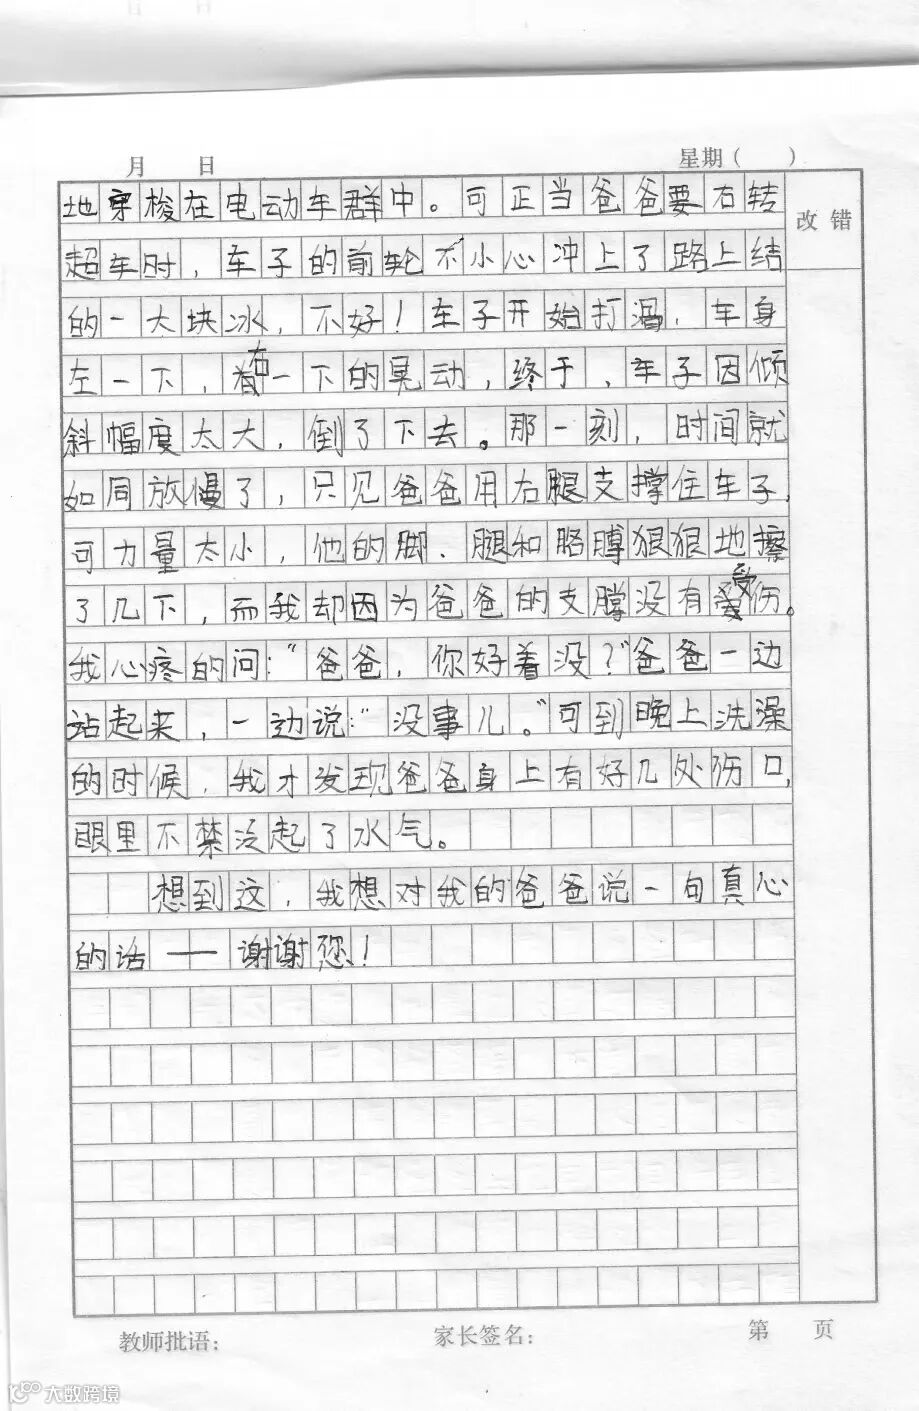 月 日 星期( )
改错
地穿梭在电动车群中。可正当爸爸要右转
超车时，车子的前轮不小心冲上了路上结
的一大块冰，不好！车子开始打滑，车身
左一下，右一下的晃动，终于，车子因倾
斜幅度太大，倒了下去。那一刻，时间就
如同放慢了，只见爸爸用右腿支撑住车子，
可力量太小，他的脚、腿和胳膊狠狠地擦
了几下，而我却因为爸爸的支撑没有受伤。
我心疼的问：“爸爸，你好着没？”爸爸一边
站起来，一边说：“没事儿。”可到晚上洗澡
的时候，我才发现爸爸身上有好几处伤口，
眼里不禁泛起了水气。
想到这，我想对我的爸爸说一句真心
的话——谢谢您！
教师批语： 家长签名： 第 页
大数跨境